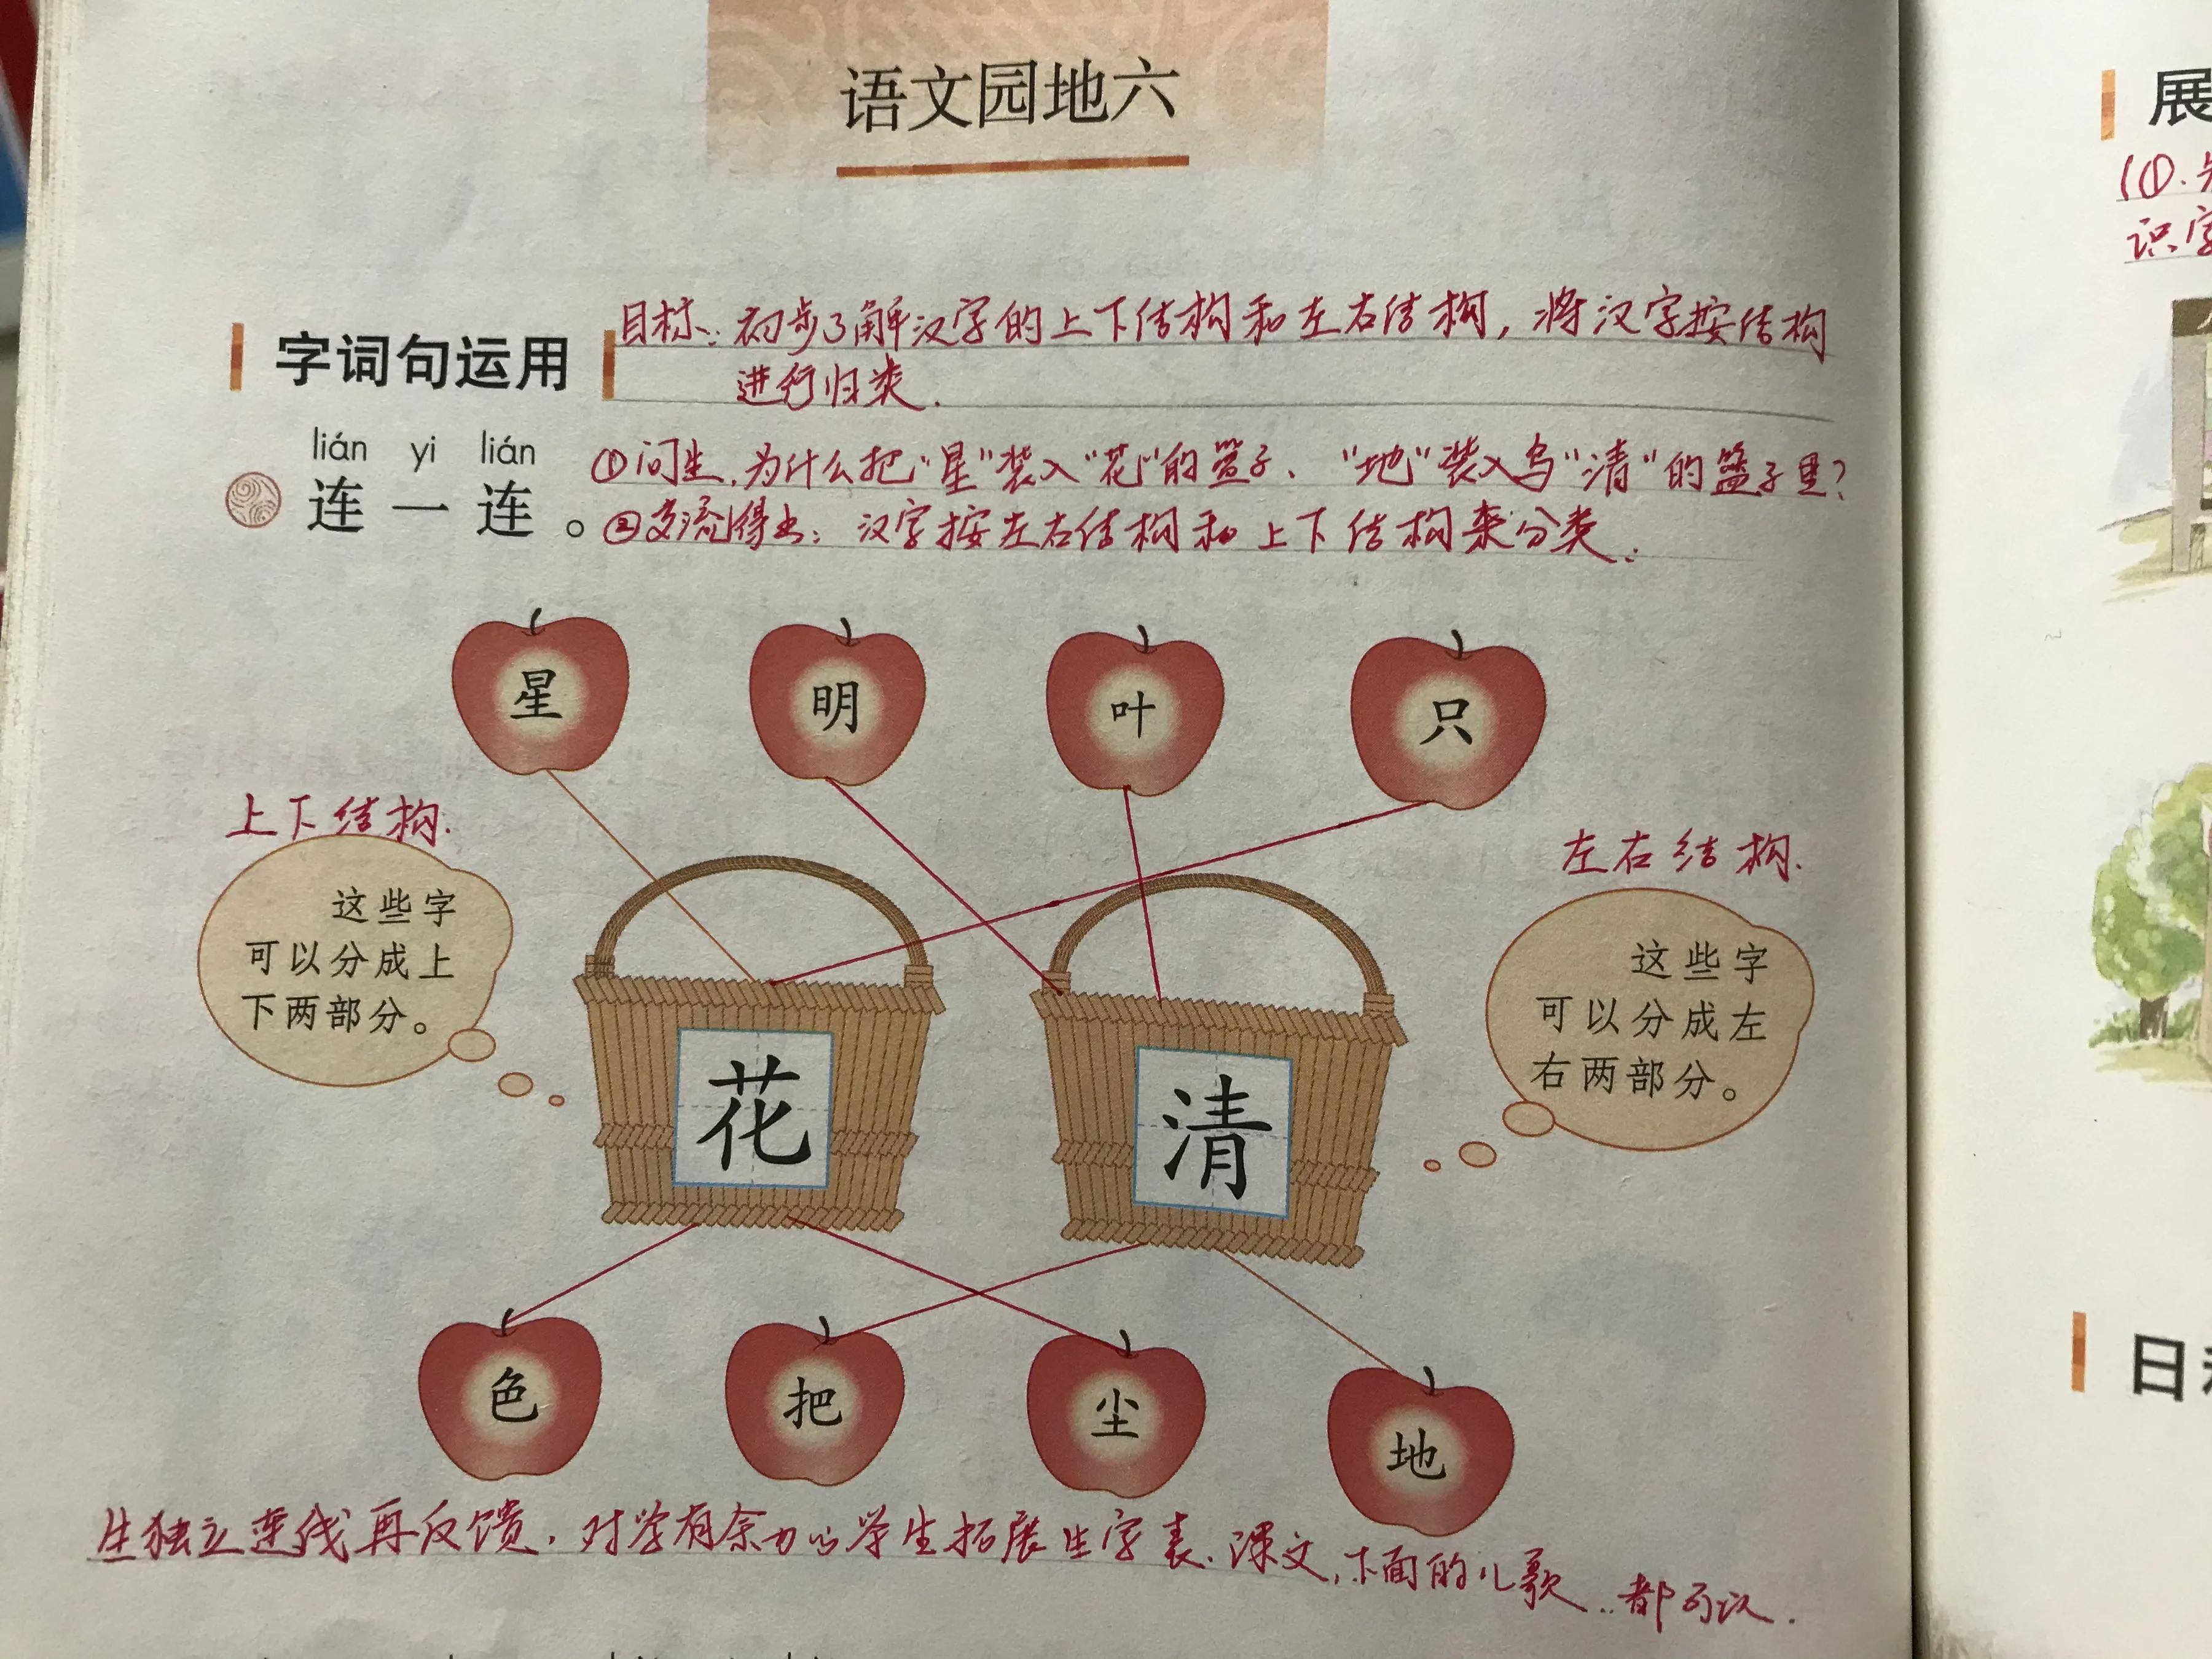 语文园地六
字词句运用
目标：初步了解汉字的上下结构和左右结构，将汉字按结构
进行归类.
lián yi lián
连一连。
①问生,为什么把“星”装入“花”的篮子、“地”装入写“清”的篮子里？
②交流得出：汉字按左右结构和上下结构来分类.
星 明 叶 只
上下结构.
这些字
可以分成上
下两部分。
左右结构.
这些字
可以分成左
右两部分。
花 清
色 把 尘 地
生独立连线再反馈，对学有余力的学生拓展生字表.课文,下面的儿歌..都可以.
展
(①.
识字
日